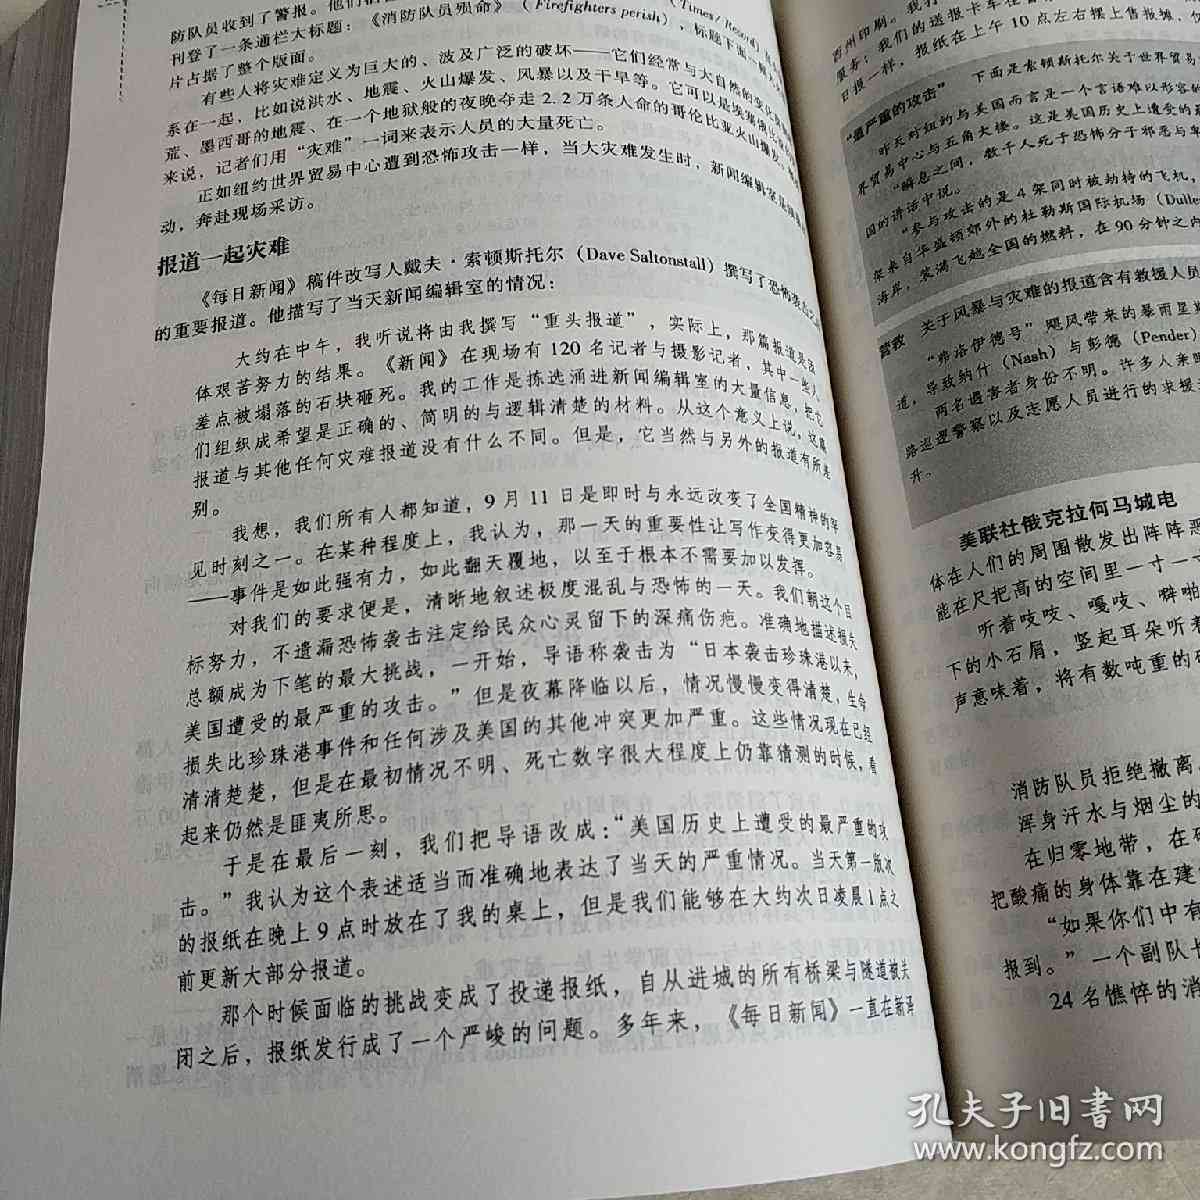 防队员收到了警报。
刊登了一条通栏大标题：《消防队员殒命》（Firefighters perish），标题下面一幅
片占据了整个版面。
有些人将灾难定义为巨大的、波及广泛的破坏——它们经常与大自然的变化
系在一起，比如说洪水、地震、火山爆发、风暴以及干旱等。它可以是埃塞俄比亚
荒、墨西哥的地震、在一个地狱般的夜晚夺走 2.2 万条人命的哥伦比亚火山爆发。
来说，记者们用“灾难”一词来表示人员的大量死亡。
正如纽约世界贸易中心遭到恐怖攻击一样，当大灾难发生时，新闻编辑室
动，奔赴现场采访。
报道一起灾难
《每日新闻》稿件改写人戴夫·索顿斯托尔（Dave Saltonstall）撰写了恐怖袭击
的重要报道。他描写了当天新闻编辑室的情况：
大约在中午，我听说将由我撰写“重头报道”，实际上，那篇报道是该
体艰苦努力的结果。《新闻》在现场有 120 名记者与摄影记者，其中一些人
差点被塌落的石块砸死。我的工作是拣选涌进新闻编辑室的大量信息，把它
们组织成希望是正确的、简明的与逻辑清楚的材料。从这个意义上说，这篇
报道与其他任何灾难报道没有什么不同。但是，它当然与另外的报道有所差
别。
我想，我们所有人都知道，9 月 11 日是即时与永远改变了全国精神的罕
见时刻之一。在某种程度上，我认为，那一天的重要性让写作变得更加容易
——事件是如此强有力，如此翻天覆地，以至于根本不需要加以发挥。
对我们的要求便是，清晰地叙述极度混乱与恐怖的一天。我们朝这个目
标努力，不遗漏恐怖袭击注定给民众心灵留下的深痛伤疤。准确地描述损失
总额成为下笔的最大挑战，一开始，导语称袭击为“日本袭击珍珠港以来，
美国遭受的最严重的攻击。”但是夜幕降临以后，情况慢慢变得清楚，生命
损失比珍珠港事件和任何涉及美国的其他冲突更加严重。这些情况现在已经
清清楚楚，但是在最初情况不明、死亡数字很大程度上仍靠猜测的时候，看
起来仍然是匪夷所思。
于是在最后一刻，我们把导语改成：“美国历史上遭受的最严重的攻
击。”我认为这个表述适当而准确地表达了当天的严重情况。当天第一版次
的报纸在晚上 9 点时放在了我的桌上，但是我们能够在大约次日凌晨 1 点之
前更新大部分报道。
那个时候面临的挑战变成了投递报纸，自从进城的所有桥梁与隧道被关
闭之后，报纸发行成了一个严峻的问题。多年来，《每日新闻》一直在新泽
西州印刷。我
服务；我们的送报卡车在
日报一样，报纸在上午 10 点左右摆上售报摊，
下面是索顿斯托尔关于世界贸易
“最严重的攻击”
昨天对纽约与美国而言是一个言语难以形容的
界贸易中心与五角大楼。这是美国历史上遭受的最
“瞬息之间，数千人死于恐怖分子邪恶与卑
国的讲话中说。
“参与攻击的是 4 架同时被劫持的飞机，
架来自华盛顿郊外的杜勒斯国际机场（Dulle
海岸，装满飞越全国的燃料，在 90 分钟之内
关于风暴与灾难的报道含有救援人员
营救
“弗洛伊德号”飓风带来的暴雨显
道，导致纳什（Nash）与彭德（Pender）
两名遇害者身份不明。许多人乘
路巡逻警察以及志愿人员进行的求援
升。
美联社俄克拉何马城电
体在人们的周围散发出阵阵恶
能在尺把高的空间里一寸一
听着吱吱、嘎吱、噼啪
下的小石屑，竖起耳朵听着
声意味着，将有数吨重的
消防队员拒绝撤离。
浑身汗水与烟尘的
在归零地带，在
把酸痛的身体靠在建
“如果你们中有
报到。”一个副队长
24 名憔悴的消
孔夫子旧书网
www.kongfz.com